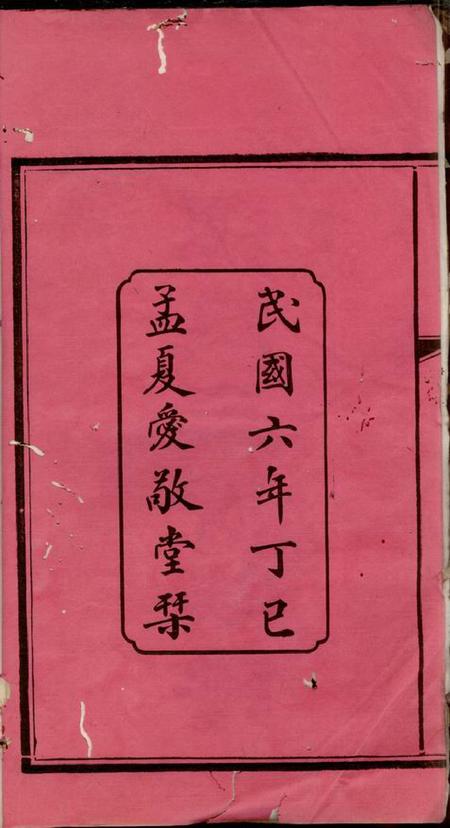 民國六年丁巳
孟夏愛敬堂栞